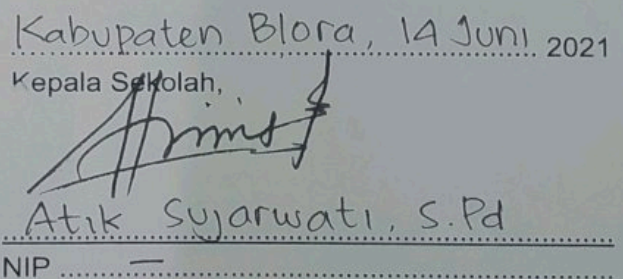 Kabupaten Blora, 14 Juni 2021
Kepala Sekolah,
Atik Sujarwati, S.Pd
NIP –